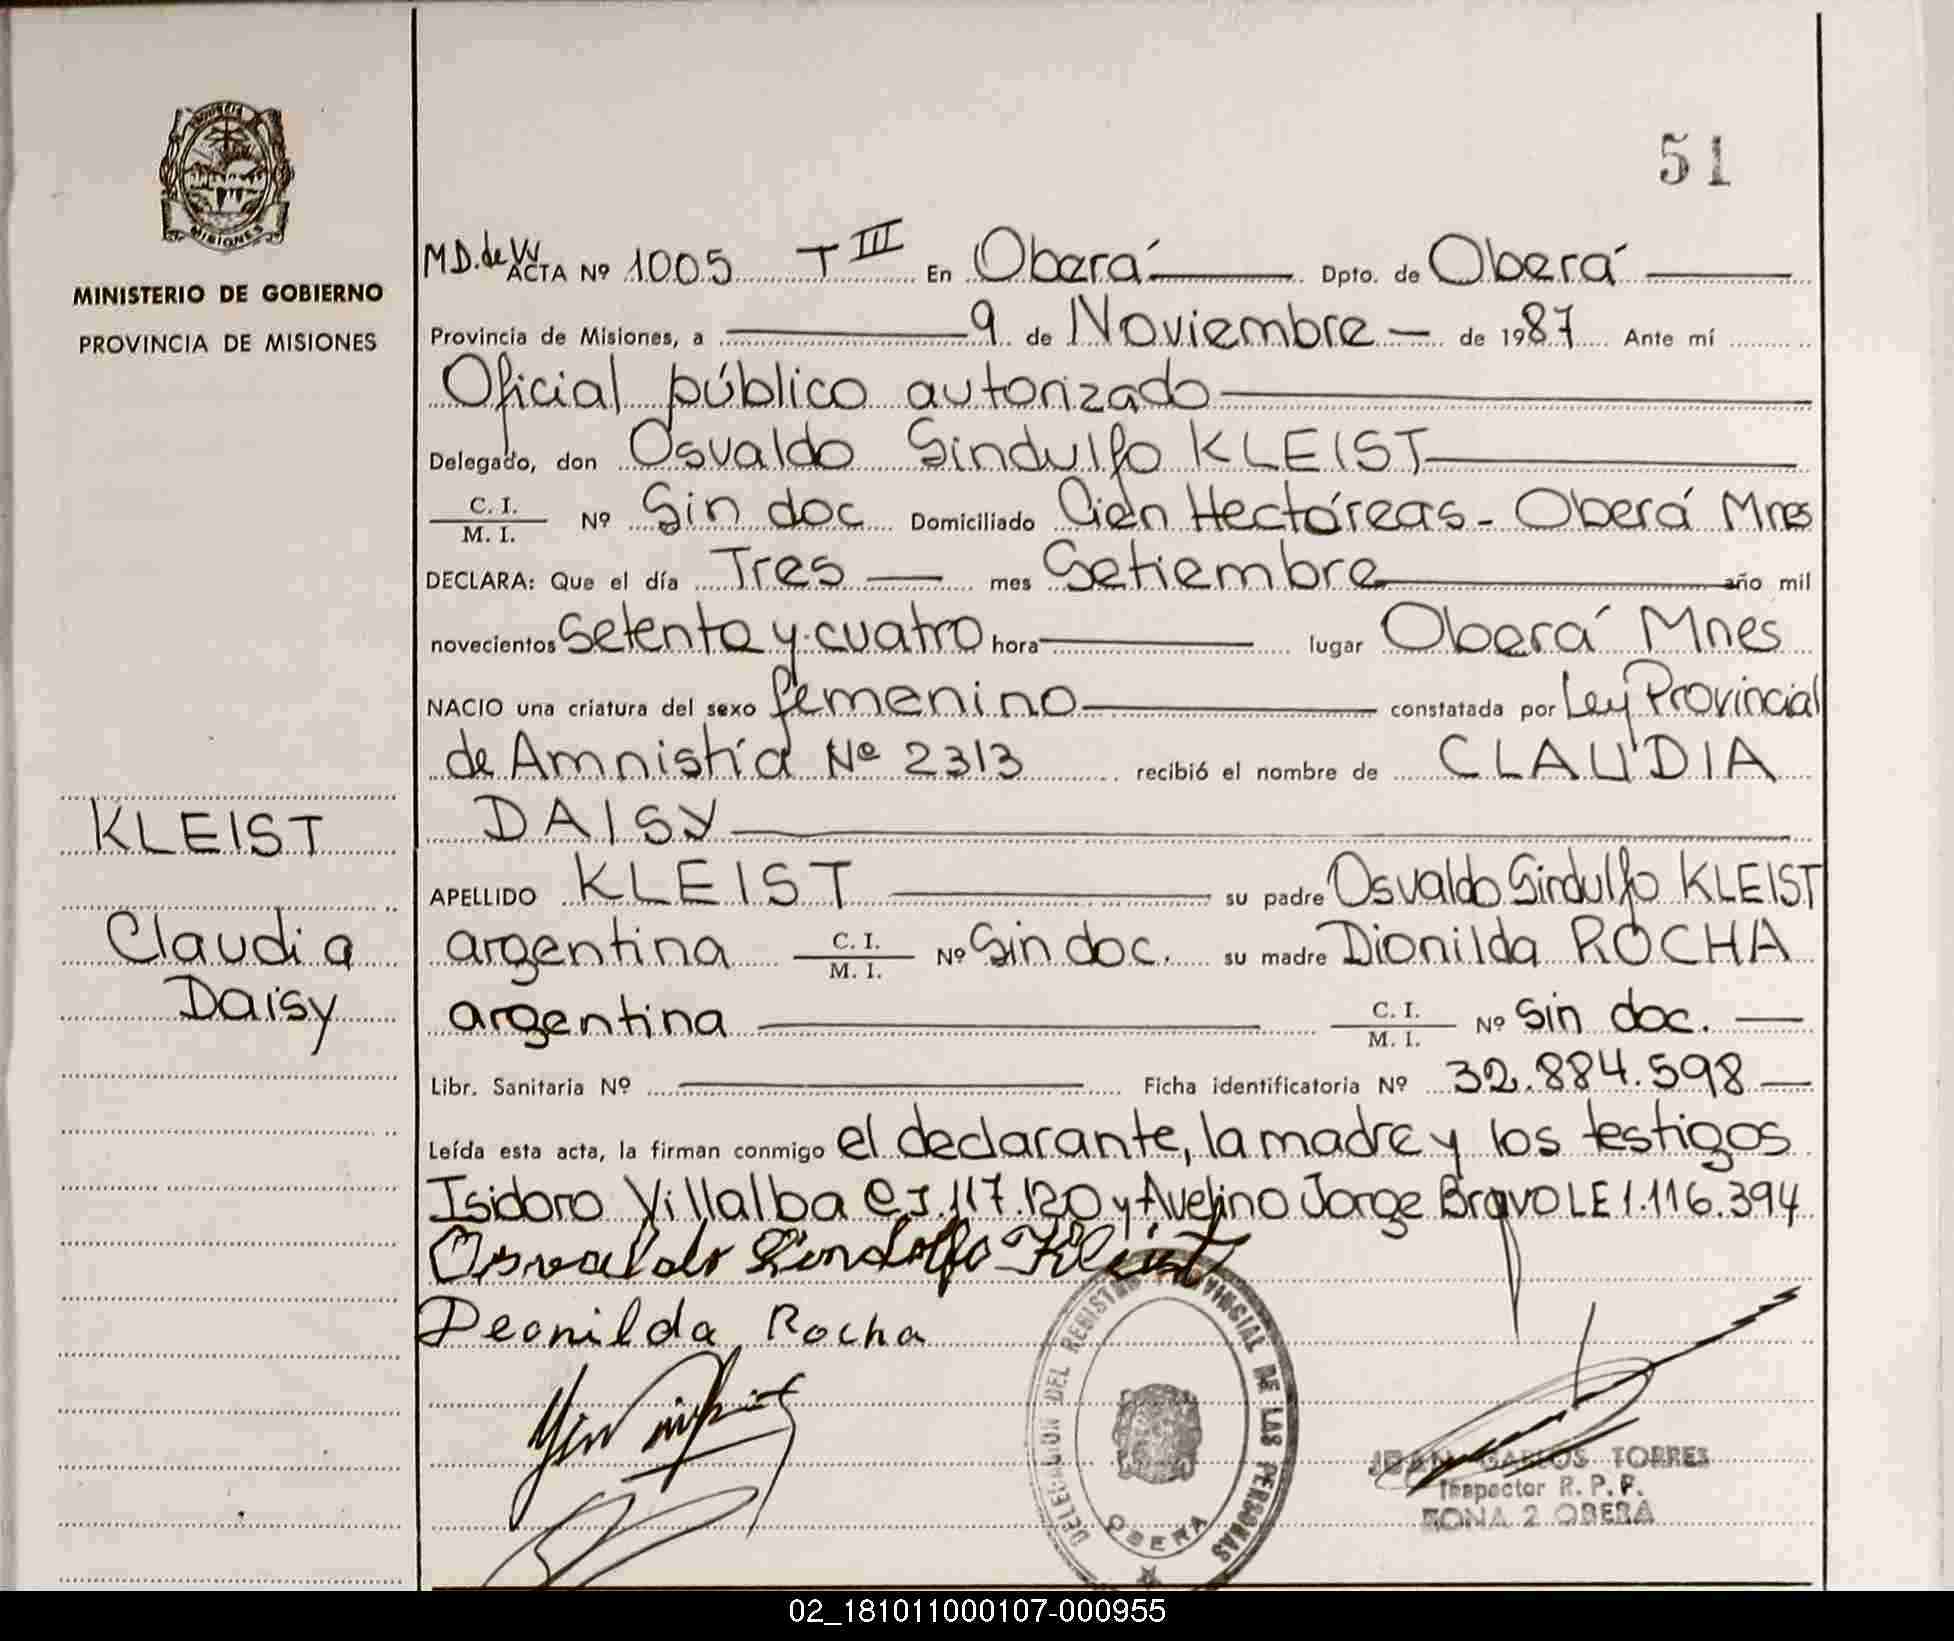 51
MISIONES
MINISTERIO DE GOBIERNO
PROVINCIA DE MISIONES
KLEIST
Claudia
Daisy
M.D. de W ACTA Nº 1005 T III En Oberá Dpto. de Oberá
Provincia de Misiones, a 9 de Noviembre de 1987 Ante mí
Oficial público autorizado
Delegado, don Osvaldo Sindulfo KLEIST
C. I. / M. I. Nº Sin doc Domiciliado Cien Hectáreas - Oberá Mnes
DECLARA: Que el día Tres mes Setiembre año mil
novecientos setenta y cuatro hora lugar Oberá Mnes
NACIO una criatura del sexo femenino constatada por Ley Provincial
de Amnistía Nº 2313 recibió el nombre de CLAUDIA
DAISY
APELLIDO KLEIST su padre Osvaldo Sindulfo KLEIST
argentina C. I. / M. I. Nº Sin doc. su madre Dionilda ROCHA
argentina C. I. / M. I. Nº Sin doc.
Libr. Sanitaria Nº Ficha identificatoria Nº 32.884.598
Leída esta acta, la firman conmigo el declarante, la madre y los testigos
Isidoro Villalba C I. 117.120 y Avelino Jorge Bravo LE 1.116.394
Osvaldo Sindolfo Kleist
Deonilda Rocha
DELEGACION DEL REGISTRO PROVINCIAL DE LAS PERSONAS
OBERA
JUAN CARLOS TORRES
Inspector R. P. P.
ZONA 2 OBERA
02_181011000107-000955